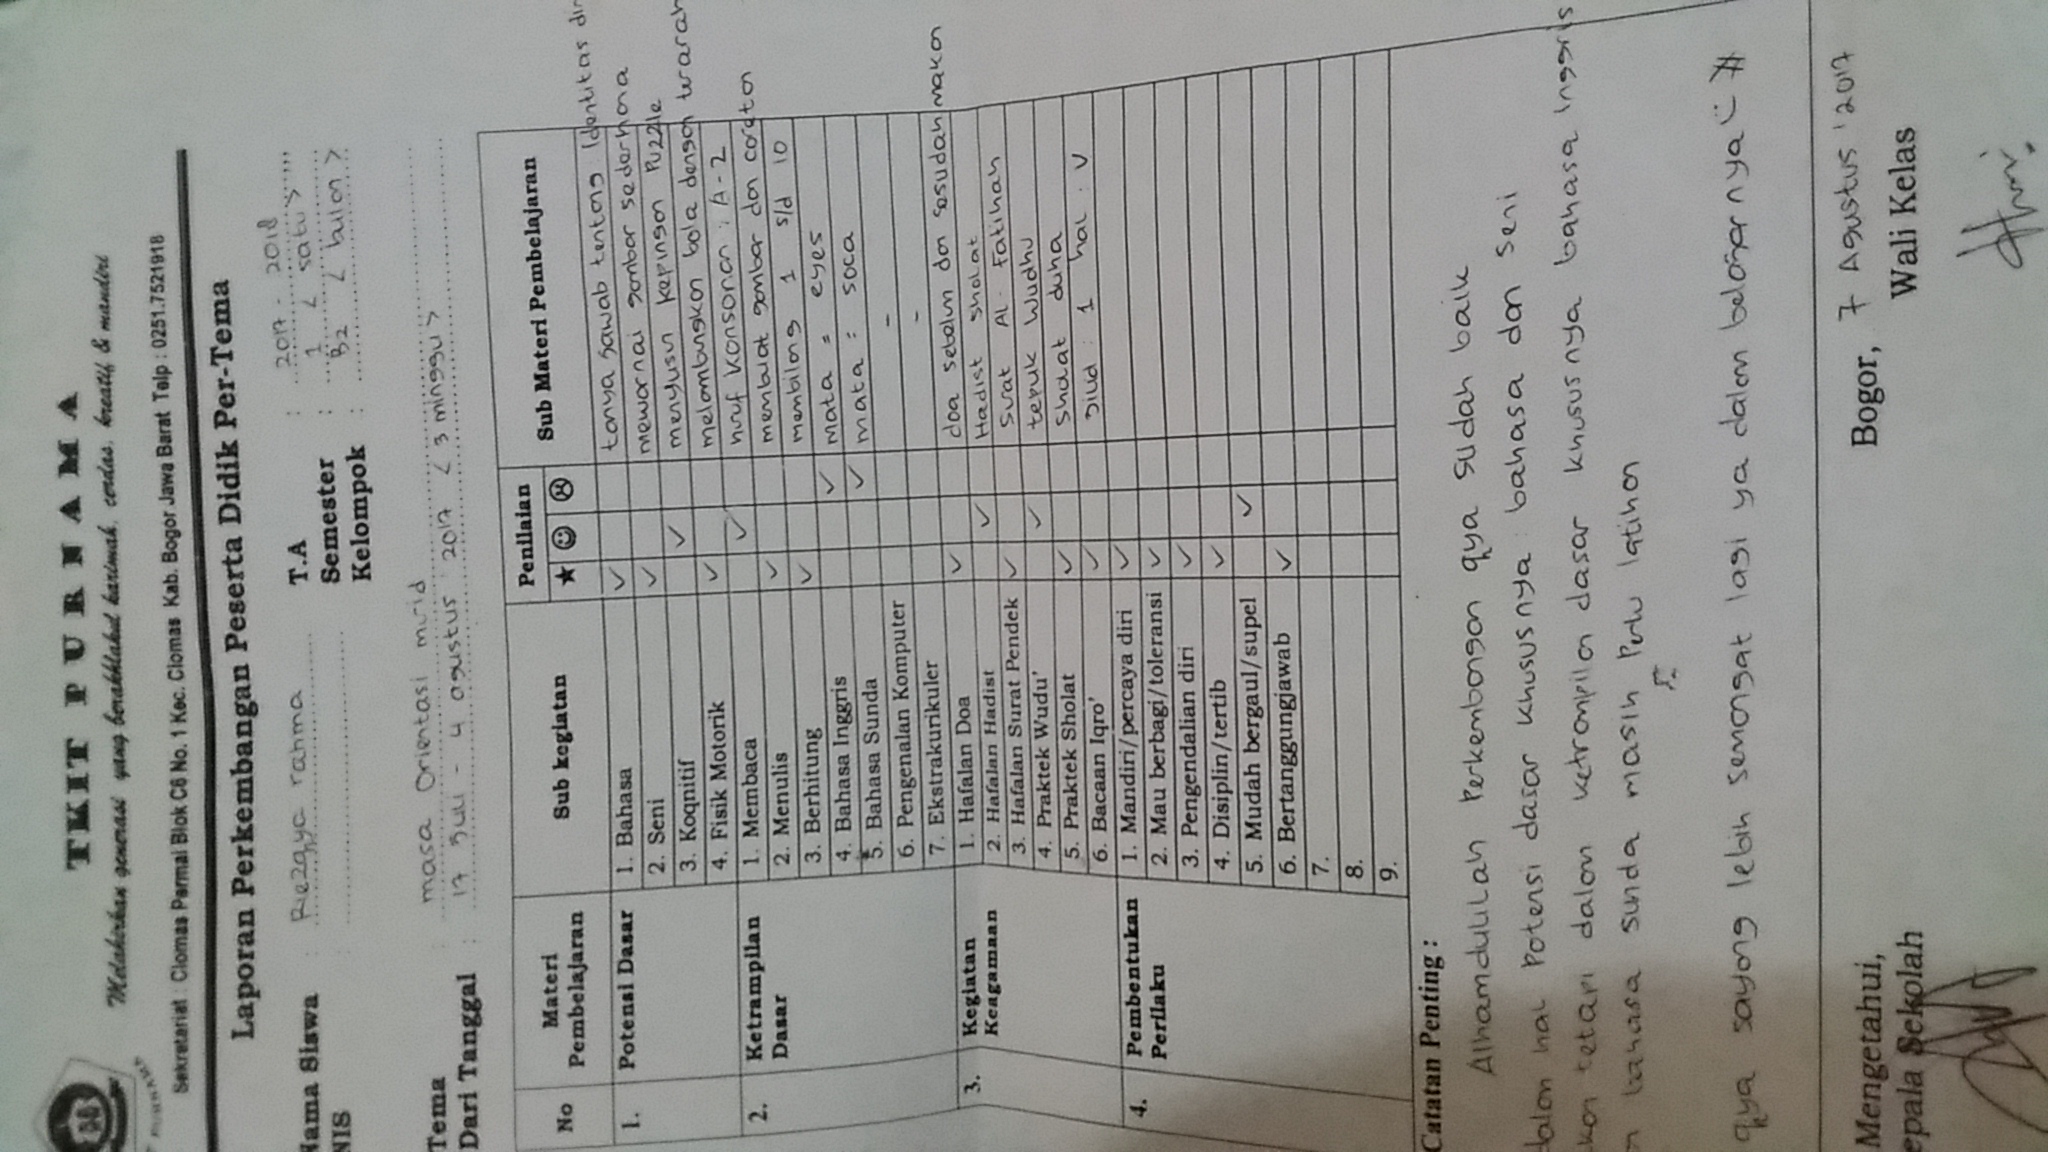 TKIT PURNAMA
Melahirkan generasi yang berakhlakul karimah, cerdas, kreatif & mandiri
Sekretariat : Ciomas Permai Blok C6 No. 1 Kec. Ciomas Kab. Bogor Jawa Barat Telp : 0251.7521918
Laporan Perkembangan Peserta Didik Per-Tema
Nama Siswa : Riezqya rahma T.A : 2017 - 2018
NIS : Semester : 1 < satu >
Kelompok : B2 < balon >
Tema : masa Orientasi murid
Dari Tanggal : 17 Juli - 4 agustus 2017 < 3 minggu >
No Materi Pembelajaran Sub kegiatan Penilaian Sub Materi Pembelajaran
★ ☺ ☹
1. Potensi Dasar 1. Bahasa ✓ tanya jawab tentang identitas
2. Seni ✓ mewarnai gambar sederhana
3. Koqnitif ✓ menyusun kepingan Puzzle
4. Fisik Motorik ✓ melambungkan bola dengan terarah
2. Ketrampilan Dasar 1. Membaca ✓ huruf konsonan : A - Z
2. Menulis ✓ membuat gambar dan coretan
3. Berhitung ✓ membilang 1 s/d 10
4. Bahasa Inggris ✓ mata = eyes
5. Bahasa Sunda ✓ mata : soca
6. Pengenalan Komputer -
7. Ekstrakurikuler -
3. Kegiatan Keagamaan 1. Hafalan Doa ✓ doa sebelum dan sesudah makan
2. Hafalan Hadist ✓ Hadist sholat
3. Hafalan Surat Pendek ✓ Surat AL - Fatihah
4. Praktek Wudu' ✓ tepuk wudhu
5. Praktek Sholat ✓ Sholat duha
6. Bacaan Iqro' ✓ Jilid : 1 hal : V
4. Pembentukan Perilaku 1. Mandiri/percaya diri ✓
2. Mau berbagi/toleransi ✓
3. Pengendalian diri ✓
4. Disiplin/tertib ✓
5. Mudah bergaul/supel ✓
6. Bertanggungjawab ✓
7.
8.
9.
Catatan Penting :
Alhamdulilah Perkembangan qya sudah baik
dalam hal Potensi dasar khususnya : bahasa dan seni
tetapi dalam ketrampilan dasar khususnya bahasa Inggris
bahasa sunda masih Perlu latihan
qya sayang lebih semangat lagi ya dalam belajarnya
Bogor, 7 Agustus '2017
Mengetahui,
Kepala Sekolah Wali Kelas